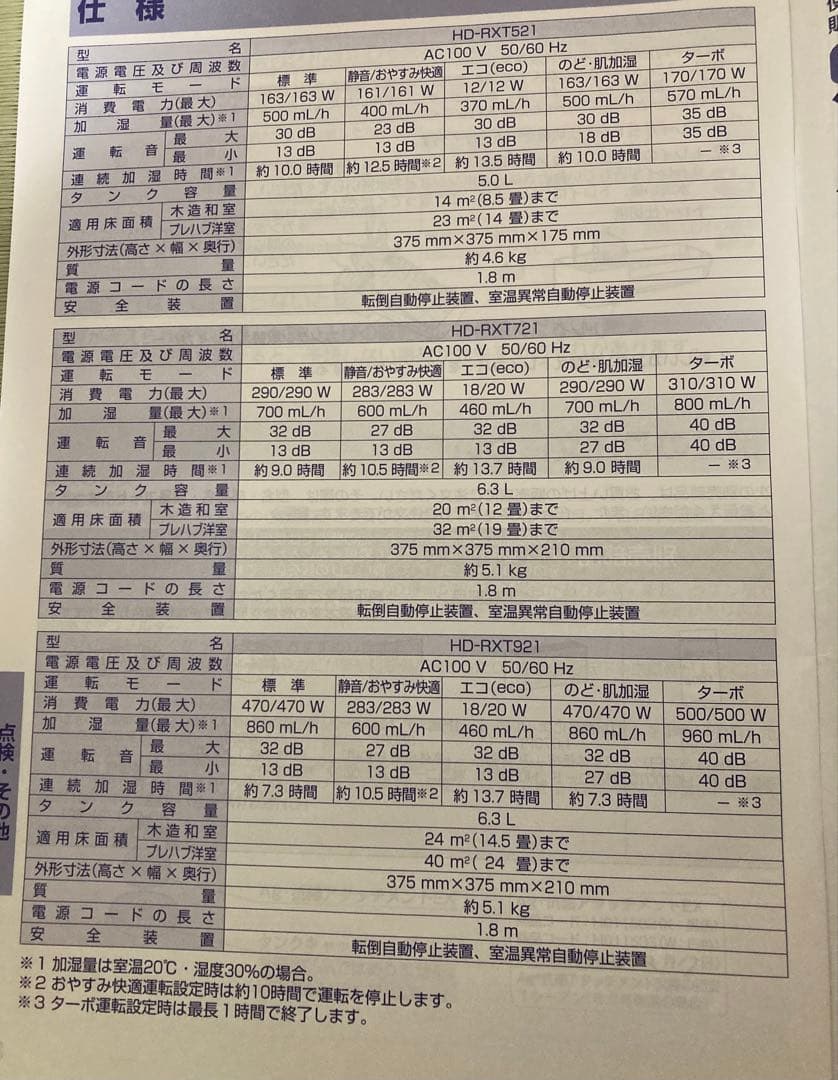 仕様
型名 HD-RXT521
電源電圧及び周波数 AC100 V 50/60 Hz
運転モード 標準 静音/おやすみ快適 エコ(eco) のど・肌加湿 ターボ
消費電力(最大) 163/163 W 161/161 W 12/12 W 163/163 W 170/170 W
加湿量(最大)※1 500 mL/h 400 mL/h 370 mL/h 500 mL/h 570 mL/h
運転音 最大 30 dB 23 dB 30 dB 30 dB 35 dB
最小 13 dB 13 dB 13 dB 18 dB 35 dB
連続加湿時間※1 約10.0時間 約12.5時間※2 約13.5時間 約10.0時間 － ※3
タンク容量 5.0 L
適用床面積 木造和室 14 m²(8.5 畳)まで
プレハブ洋室 23 m²(14 畳)まで
外形寸法(高さ×幅×奥行) 375 mm×375 mm×175 mm
質量 約4.6 kg
電源コードの長さ 1.8 m
安全装置 転倒自動停止装置、室温異常自動停止装置
型名 HD-RXT721
電源電圧及び周波数 AC100 V 50/60 Hz
運転モード 標準 静音/おやすみ快適 エコ(eco) のど・肌加湿 ターボ
消費電力(最大) 290/290 W 283/283 W 18/20 W 290/290 W 310/310 W
加湿量(最大)※1 700 mL/h 600 mL/h 460 mL/h 700 mL/h 800 mL/h
運転音 最大 32 dB 27 dB 32 dB 32 dB 40 dB
最小 13 dB 13 dB 13 dB 27 dB 40 dB
連続加湿時間※1 約9.0時間 約10.5時間※2 約13.7時間 約9.0時間 － ※3
タンク容量 6.3 L
適用床面積 木造和室 20 m²(12 畳)まで
プレハブ洋室 32 m²(19 畳)まで
外形寸法(高さ×幅×奥行) 375 mm×375 mm×210 mm
質量 約5.1 kg
電源コードの長さ 1.8 m
安全装置 転倒自動停止装置、室温異常自動停止装置
型名 HD-RXT921
電源電圧及び周波数 AC100 V 50/60 Hz
運転モード 標準 静音/おやすみ快適 エコ(eco) のど・肌加湿 ターボ
消費電力(最大) 470/470 W 283/283 W 18/20 W 470/470 W 500/500 W
加湿量(最大)※1 860 mL/h 600 mL/h 460 mL/h 860 mL/h 960 mL/h
運転音 最大 32 dB 27 dB 32 dB 32 dB 40 dB
最小 13 dB 13 dB 13 dB 27 dB 40 dB
連続加湿時間※1 約7.3時間 約10.5時間※2 約13.7時間 約7.3時間 － ※3
タンク容量 6.3 L
適用床面積 木造和室 24 m²(14.5 畳)まで
プレハブ洋室 40 m²( 24 畳)まで
外形寸法(高さ×幅×奥行) 375 mm×375 mm×210 mm
質量 約5.1 kg
電源コードの長さ 1.8 m
安全装置 転倒自動停止装置、室温異常自動停止装置
※1 加湿量は室温20℃・湿度30%の場合。
※2 おやすみ快適運転設定時は約10時間で運転を停止します。
※3 ターボ運転設定時は最長1時間で終了します。
点検・その他